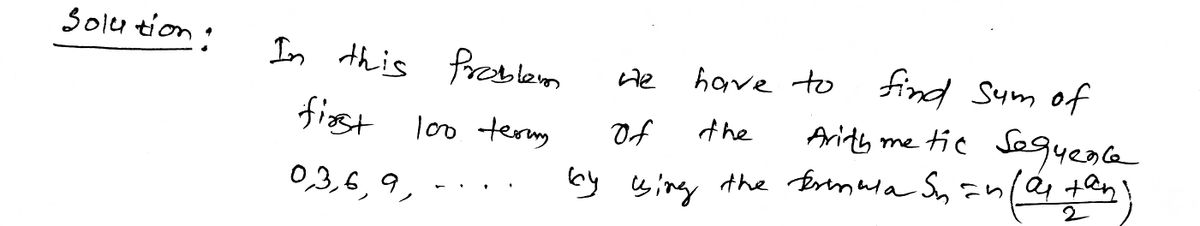 Solution:
In this Problem we have to find Sum of
first 100 terms of the Arithmetic Sequence
0,3,6,9, ---- by using the formula Sn = n(a1 + an / 2)